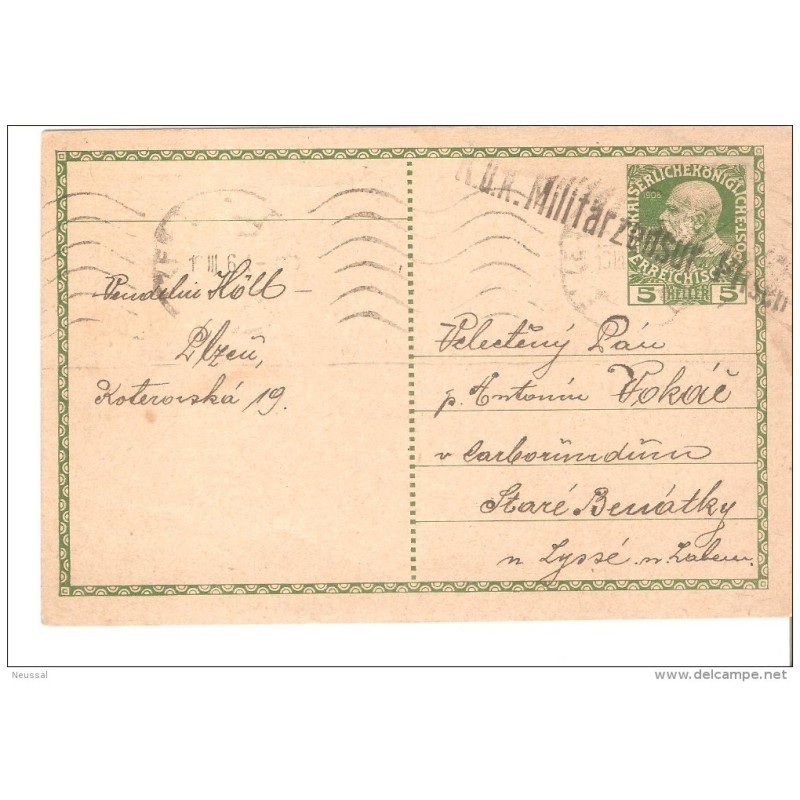 K.u.K. Militärzensur Pilsen
KAISERLICHEKÖNIGLICHE
ÖSTERREICHISCHE POST
1908
5 HELLER 5
III 6
Vendelin Höll –
Plzeň,
Koterovská 19.
Velectěný Pán
p. Antonín Vokáč
v Carborundum
Staré Benátky
n Lyssé n Labem.
Neussal
www.delcampe.net